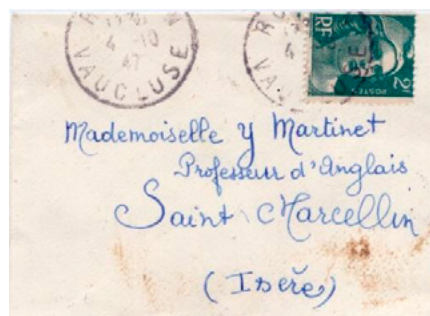 4 10
47
VAUCLUSE
4
RF
2F
POSTES
Mademoiselle Y Martinet
Professeur d'Anglais
Saint Marcellin
(Isère)